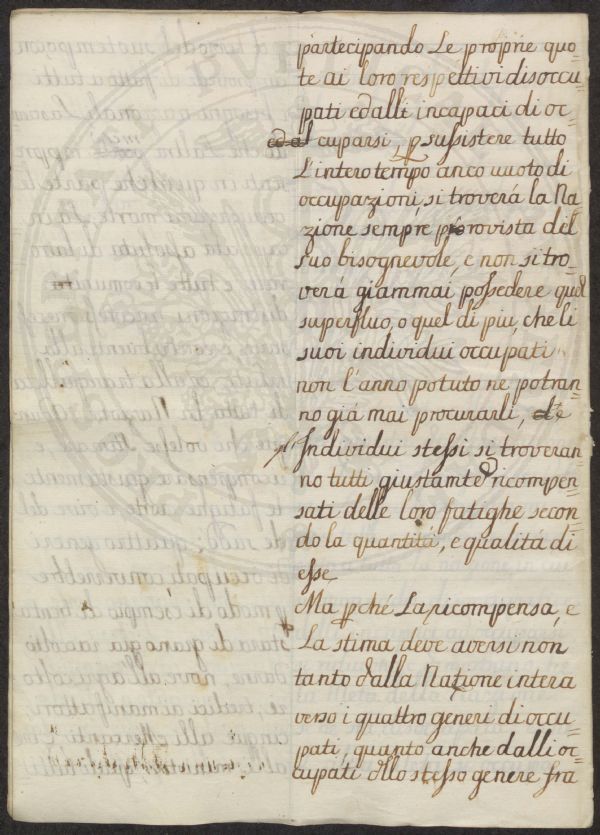 partecipando Le proprie quo=
te ai loro respettivi disoccu=
pati ed alli incapaci di oc=
cuparsi, p sussistere tutto
L'intero tempo anco vuoto di
occupazioni, si troverá la Na=
zione sempre provista del
suo bisognevole, e non si tro=
verá giammai possedere quel
superfluo, o quel di piu, che li
suoi individui occupati
non l'anno potuto ne potran=
no giá mai procurarli,
Individui stessi si troveran=
no tutti giustamte ricompen=
sati delle loro fatighe secon=
do la quantitá, e qualitá di
esse
Ma pché La ricompensa, e
La stima deve aversi non
tanto dalla Natione intera
verso i quattro generi di occu=
pati, quanto anche dalli oc=
cupati dllo stesso genere fra